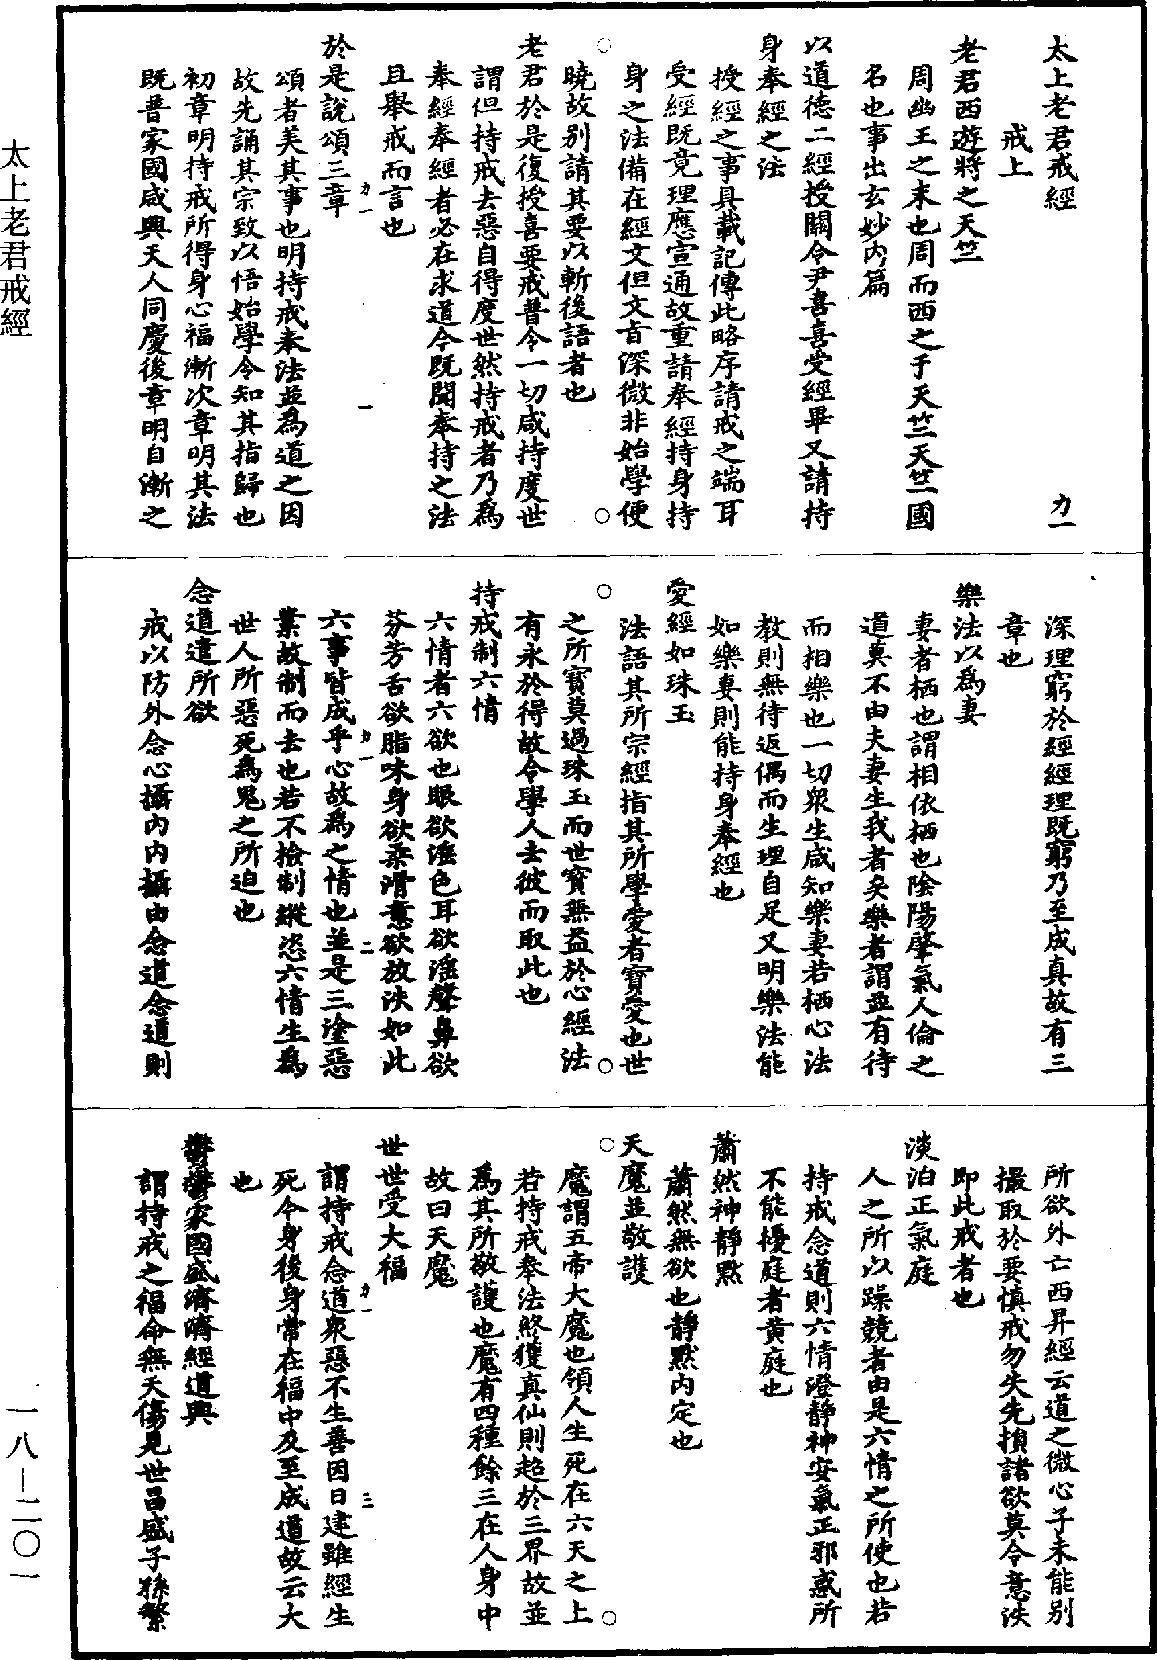 太上老君戒經　力一
戒上
老君西遊將之天竺
周幽王之末也周而西之于天竺天竺國
名也事出玄妙內篇
以道德二經授關令尹喜喜受經畢又請持
身奉經之法
授經之事具載記傳此略序請戒之端耳
受經既竟理應宣通故重請奉經持身持
身之法備在經文但文旨深微非始學便
曉故别請其要以斬後語者也
老君於是復授喜要戒普令一切咸持度世
謂但持戒去惡自得度世然持戒者乃為
奉經奉經者必在求道今既聞奉持之法
且舉戒而言也
於是說頌三章
力一　一
頌者美其事也明持戒奉法並為道之因
故先誦其宗致以悟始學令知其指歸也
初章明持戒所得身心福漸次章明其法
既普家國咸興天人同慶後章明自漸之
深理窮於經經理既窮乃至成真故有三
章也
樂法以為妻
妻者栖也謂相依栖也陰陽肇氣人倫之
道莫不由夫妻生我者矣樂者謂並有待
而相樂也一切眾生咸知樂妻若栖心法
教則無待返偶而生理自足又明樂法能
如樂妻則能持身奉經也
愛經如珠玉
法語其所宗經指其所學愛者寶愛也世
之所寶莫過珠玉而世寶無益於心經法
有永於得故令學人去彼而取此也
持戒制六情
六情者六欲也眼欲淫色耳欲淫聲鼻欲
芬芳舌欲脂味身欲柔滑意欲放泆如此
力一　二
六事皆成乎心故為之情也並是三塗惡
業故制而去也若不撿制縱恣六情生為
世人所惡死為鬼之所迫也
念道遣所欲
戒以防外念心攝內內攝由念道念道則
所欲外亡西昇經云道之微心子未能别
撮取於要慎戒勿失先捐諸欲莫令意泆
即此戒者也
淡泊正氣庭
人之所以躁競者由是六情之所使也若
持戒念道則六情澄靜神安氣正邪惑所
不能擾庭者黃庭也
蕭然神靜默
蕭然無欲也靜默內定也
天魔並敬護
魔謂五帝大魔也領人生死在六天之上
若持戒奉法終獲真仙則超於三界故並
為其所敬護也魔有四種餘三在人身中
故曰天魔
世世受大福
力一　三
謂持戒念道眾惡不生善因日建雖經生
死令身後身常在福中及至成道故云大
也
鬱鬱家國盛濟濟經道興
謂持戒之福命無夭傷見世昌盛子孫繁
太上老君戒經
一八—二〇一